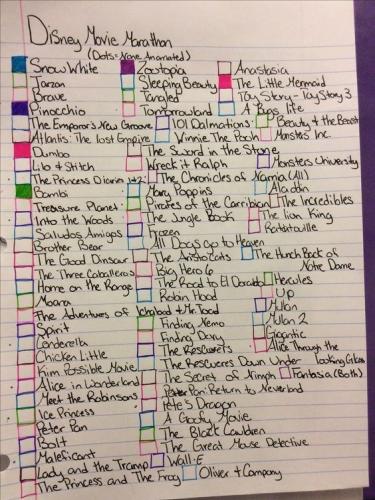 Disney Movie Marathon
(Dots = None Animated)
Snow White Zootopia Anastasia
Tarzan Sleeping Beauty The Little Mermaid
Brave Tangled Toy Story - Toy Story 3
Pinocchio Tomorrowland A Bugs life
The Emperor's New Groove 101 Dalmations Beauty & the Beast
Atlantis: The lost Empire Winnie The Pooh Monsters Inc.
Dumbo The Sword in the Stone
Lilo & Stitch Wreck it Ralph Monsters University
The Princess Diaries 1+2 The Chronicles of Narnia (All)
Bambi Mary Poppins Aladdin
Treasure Planet Pirates of the Carribian The Incredibles
Into the Woods The Jungle Book The lion King
Saludos Amigos Frozen Ratatouille
Brother Bear All Dogs go to Heaven
The Good Dinsaur The Aristocats The Hunch Back of
The Three Caballeros Big Hero 6 Notre Dame
Home on the Range The Road to El Dorado Hercules
Moana Robin Hood Up
The Adventures of Ichabod & Mr. Toad Mulan
Spirit Finding Nemo Mulan 2
Cenderella Finding Dory Gigantic
Chicken Little The Rescuers Alice Through the
Kim Possible Movie The Rescuers Down Under Looking Glass
Alice in Wonderland The Secret of Nimph Fantasia (Both)
Meet the Robinsons Peter Pan: Return to Neverland
Ice Princess Pete's Dragon
Peter Pan A Goofy Movie
Bolt The Black Cauldren
Maleficant The Great Mouse Detective
Lady and the Tramp Wall-E
The Princess and The Frog Oliver & Company